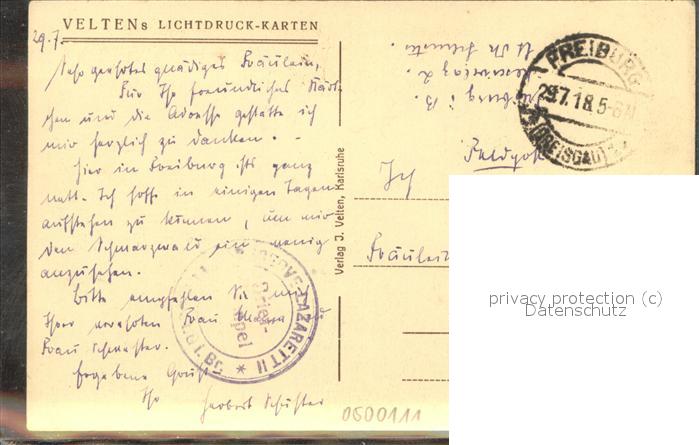 VELTENs LICHTDRUCK-KARTEN
29.7.
Sehr geehrtes gnädiges Fräulein,
Für Ihr freundliches Kärt-
chen und die Adresse gestatte ich
mir herzlich zu danken. -
Hier in Freiburg ists ganz
nett. Ich hoffe in einigen Tagen
aufstehen zu können, um mir
den Schwarzwald ein wenig
anzusehen.
Bitte empfehlen Sie mich
Ihrer verehrten Frau Mama und
Frau Schwester.
Ergebene Grüße
Ihr
Herbert Schuster
Verlag J. Velten, Karlsruhe
RESERVE-LAZARETT II
Brief
FREIBURG
29.7.18.5-6N
(BREISGAU)
Freiburg i B.
Feldpost
Fräulein
0600111
privacy protection (c)
Datenschutz